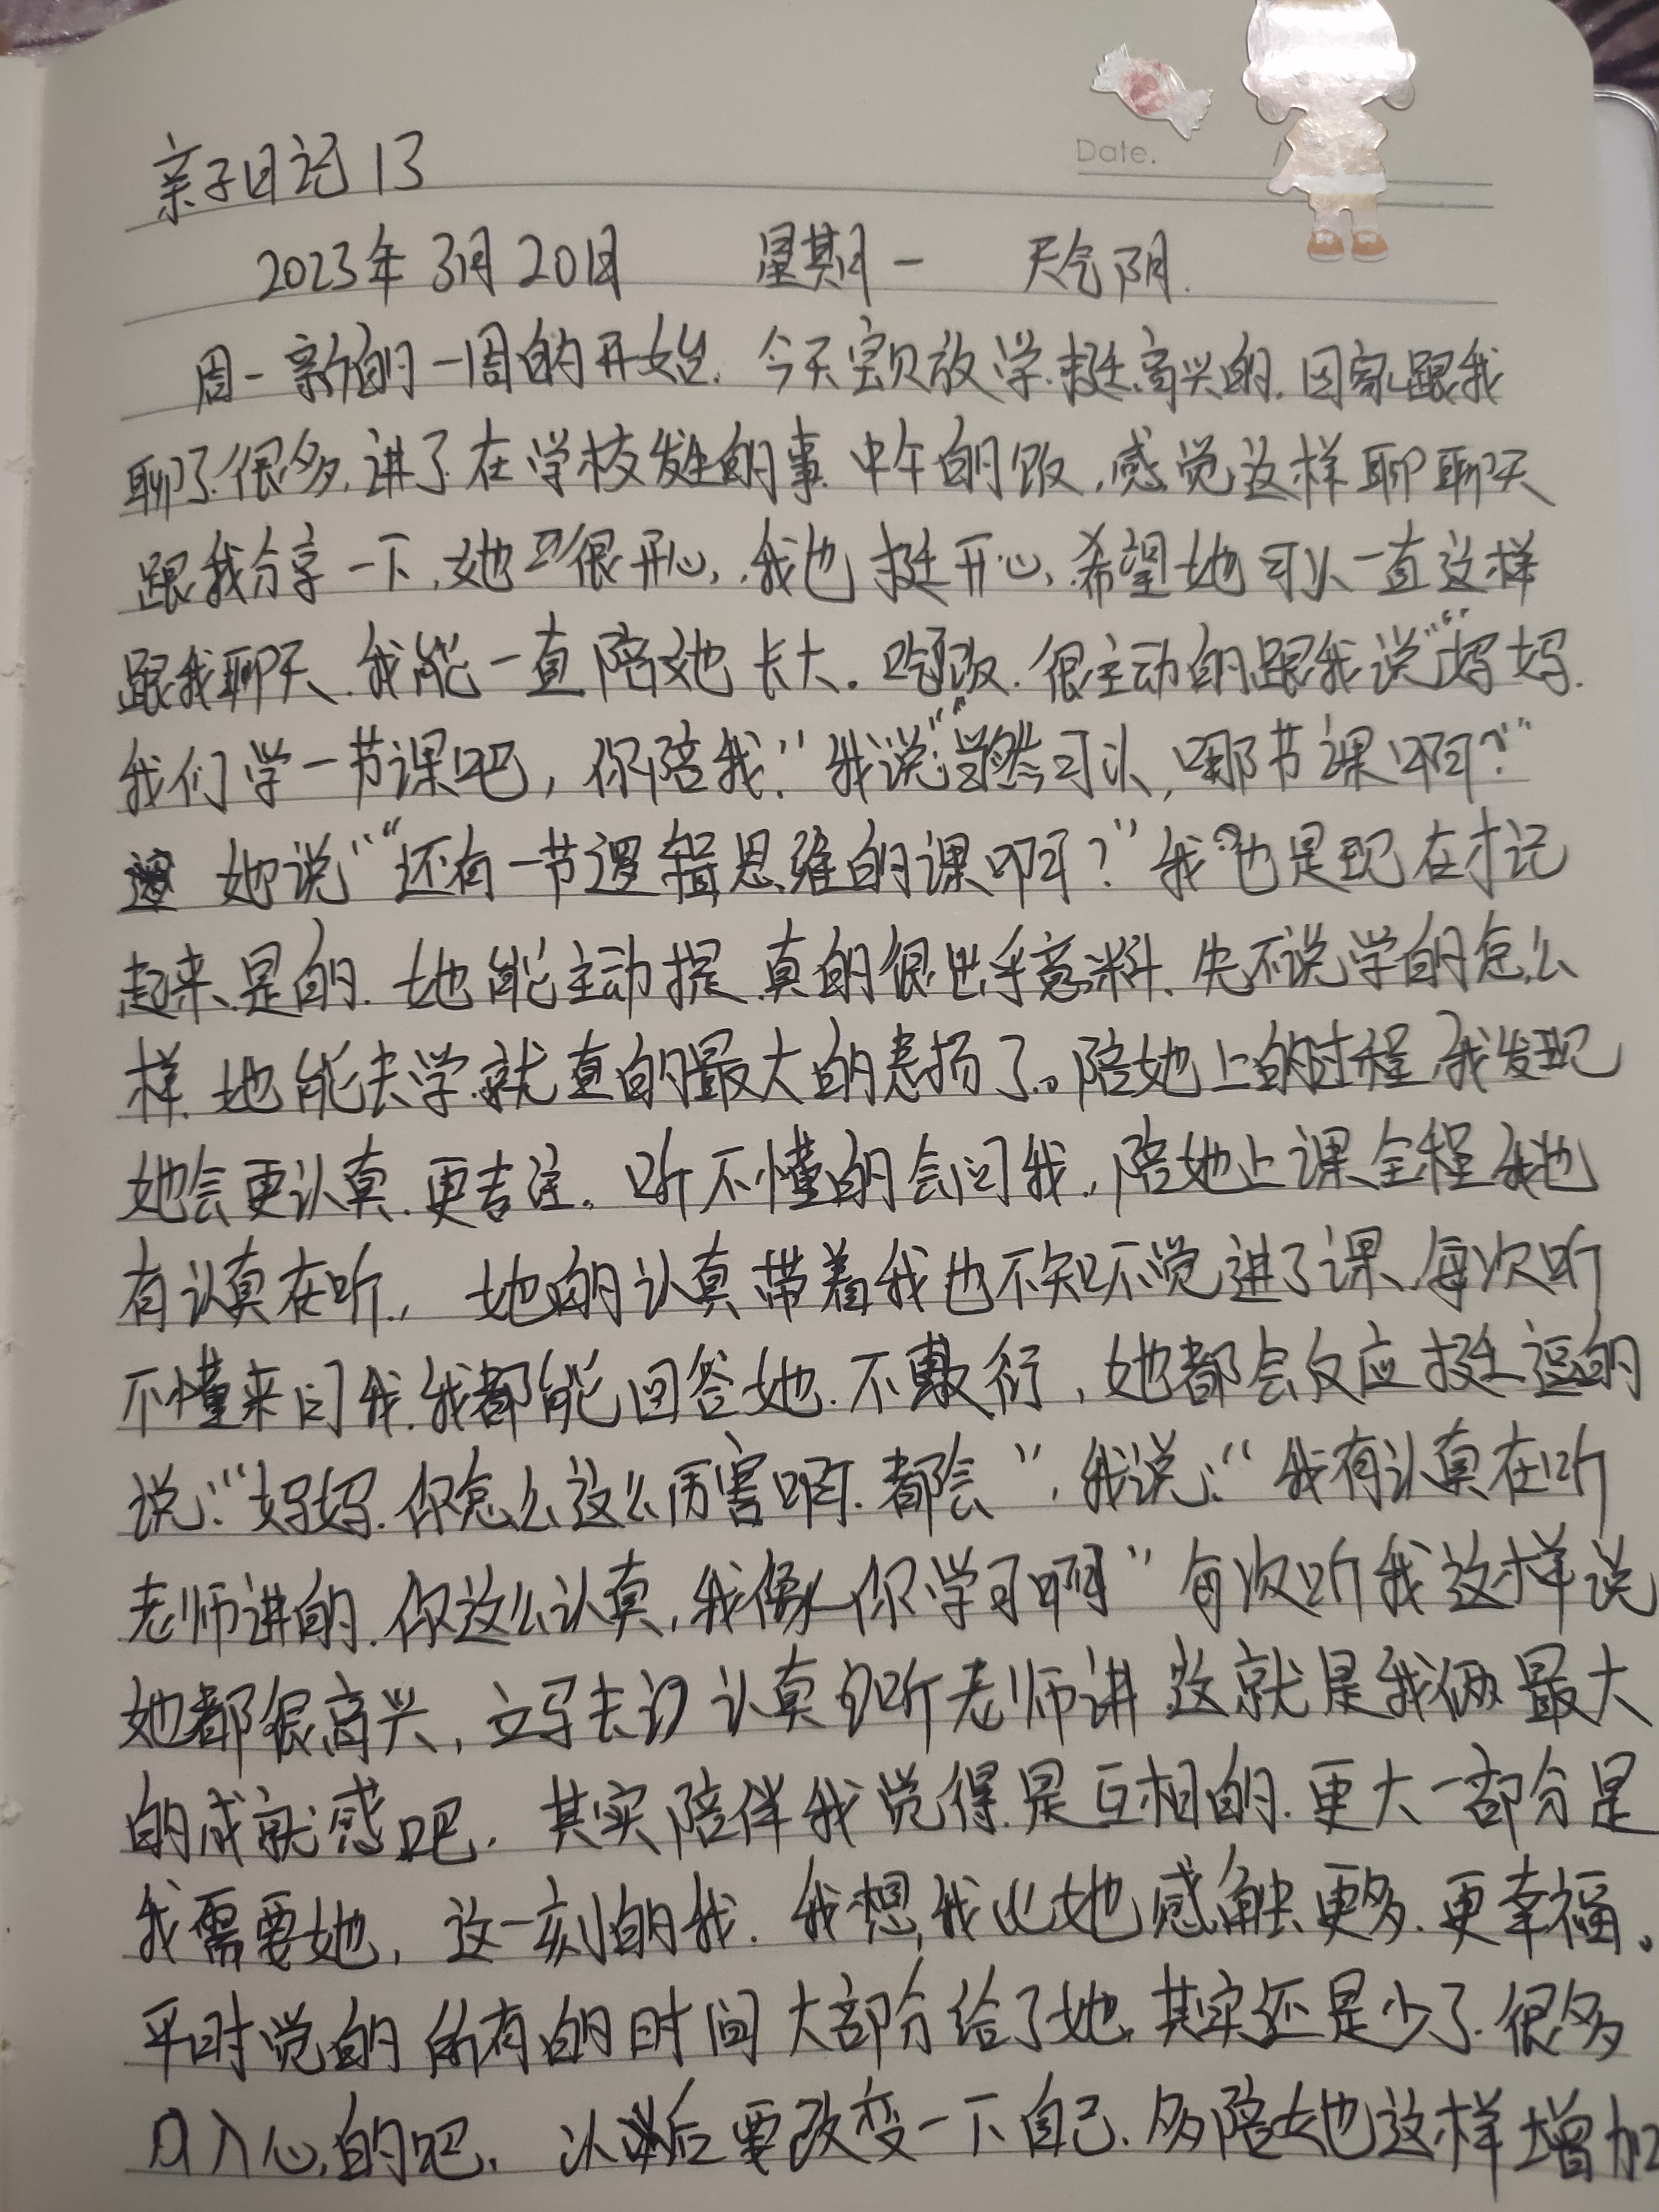 Date.
亲子日记 13
2023年 3月 20日 星期一 天气阴.
周一新的一周的开始. 今天宝贝放学.挺高兴的.回家跟我
聊了很多.讲了在学校发生的事.中午的饭.感觉这样聊聊天
跟我分享一下.她很开心,我也挺开心,希望她可以一直这样
跟我聊天.我能一直陪她长大。吃饭.很主动的跟我说“妈妈.
我们学一节课吧,你陪我.”我说:“当然可以,哪节课啊?”
她说“还有一节逻辑思维的课啊?”我也是现在才记
起来.是的.她能主动提.真的很出乎意料.先不说学的怎么
样.她能去学.就真的最大的表扬了。陪她上的过程,我发现
她会更认真.更专注。听不懂的会问我.陪她上课全程我也
有认真在听. 她的认真带着我也不知不觉进了课.每次听
不懂来问我.我都能回答她.不敷衍,她都会反应挺逗的
说:“妈妈.你怎么这么厉害啊.都会”.我说:“我有认真在听
老师讲的.你这么认真,我像你学习啊”每次听我这样说
她都很高兴,立马去认真听老师讲 这就是我俩最大
的成就感吧. 其实陪伴我觉得是互相的.更大一部分是
我需要她,这一刻的我.我想,我比她感触更多.更幸福。
平时觉的所有的时间大部分给了她.其实还是少了.很多
入心的吧. 以后要改变一下自己.多陪她这样增加